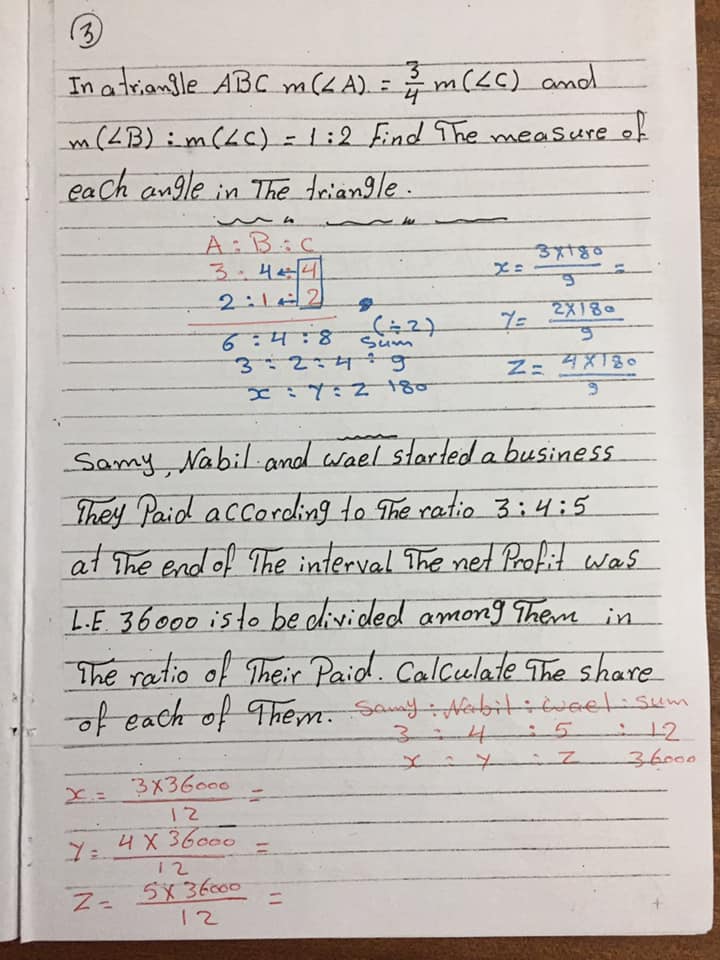 3
In a triangle ABC m(∠A) = 3/4 m(∠C) and
m(∠B) : m(∠C) = 1:2 find The measure of
each angle in The triangle.
A : B : C
3 : 4 ÷ 4
2 : 1 ÷ 2
6 : 4 : 8 (÷2)
sum
3 : 2 : 4 : 9
x : y : z 180
x = 3×180/9 =
y = 2×180/9
z = 4×180/9
Samy, Nabil and wael started a business
They Paid according to The ratio 3:4:5
at The end of The interval The net Profit was
L.E. 36000 is to be divided among Them in
The ratio of Their Paid. Calculate The share
of each of Them. Samy : Nabil : wael : sum
3 : 4 : 5 : 12
x : y : z 36000
x = 3×36000/12 =
y = 4×36000/12 =
z = 5×36000/12 =